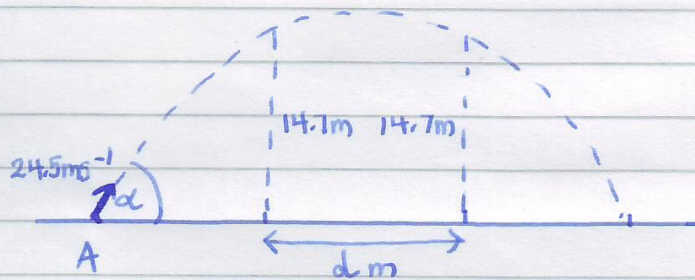 14.7m 14.7m
24.5ms⁻¹
α
A
d m